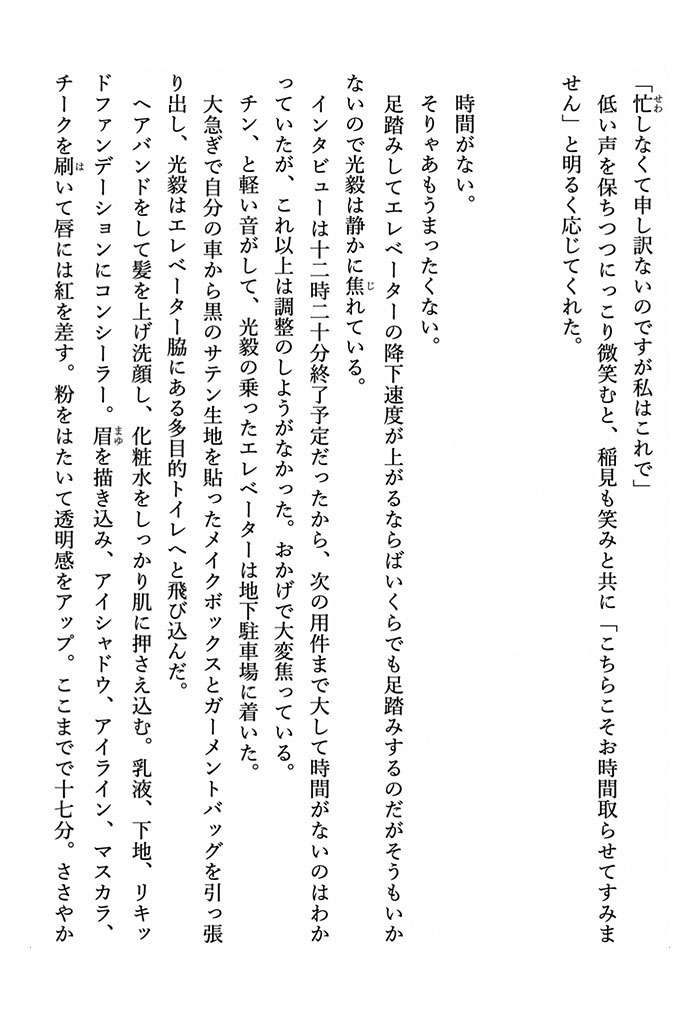 「忙しなくて申し訳ないのですが私はこれで」
低い声を保ちつつにっこり微笑むと、稲見も笑みと共に「こちらこそお時間取らせてすみま
せん」と明るく応じてくれた。
時間がない。
そりゃあもうまったくない。
足踏みしてエレベーターの降下速度が上がるならばいくらでも足踏みするのだがそうもいか
ないので光毅は静かに焦れている。
インタビューは十二時二十分終了予定だったから、次の用件まで大して時間がないのはわか
っていたが、これ以上は調整のしようがなかった。おかげで大変焦っている。
チン、と軽い音がして、光毅の乗ったエレベーターは地下駐車場に着いた。
大急ぎで自分の車から黒のサテン生地を貼ったメイクボックスとガーメントバッグを引っ張
り出し、光毅はエレベーター脇にある多目的トイレへと飛び込んだ。
ヘアバンドをして髪を上げ洗顔し、化粧水をしっかり肌に押さえ込む。乳液、下地、リキッ
ドファンデーションにコンシーラー。眉を描き込み、アイシャドウ、アイライン、マスカラ、
チークを刷いて唇には紅を差す。粉をはたいて透明感をアップ。ここまでで十七分。ささやか